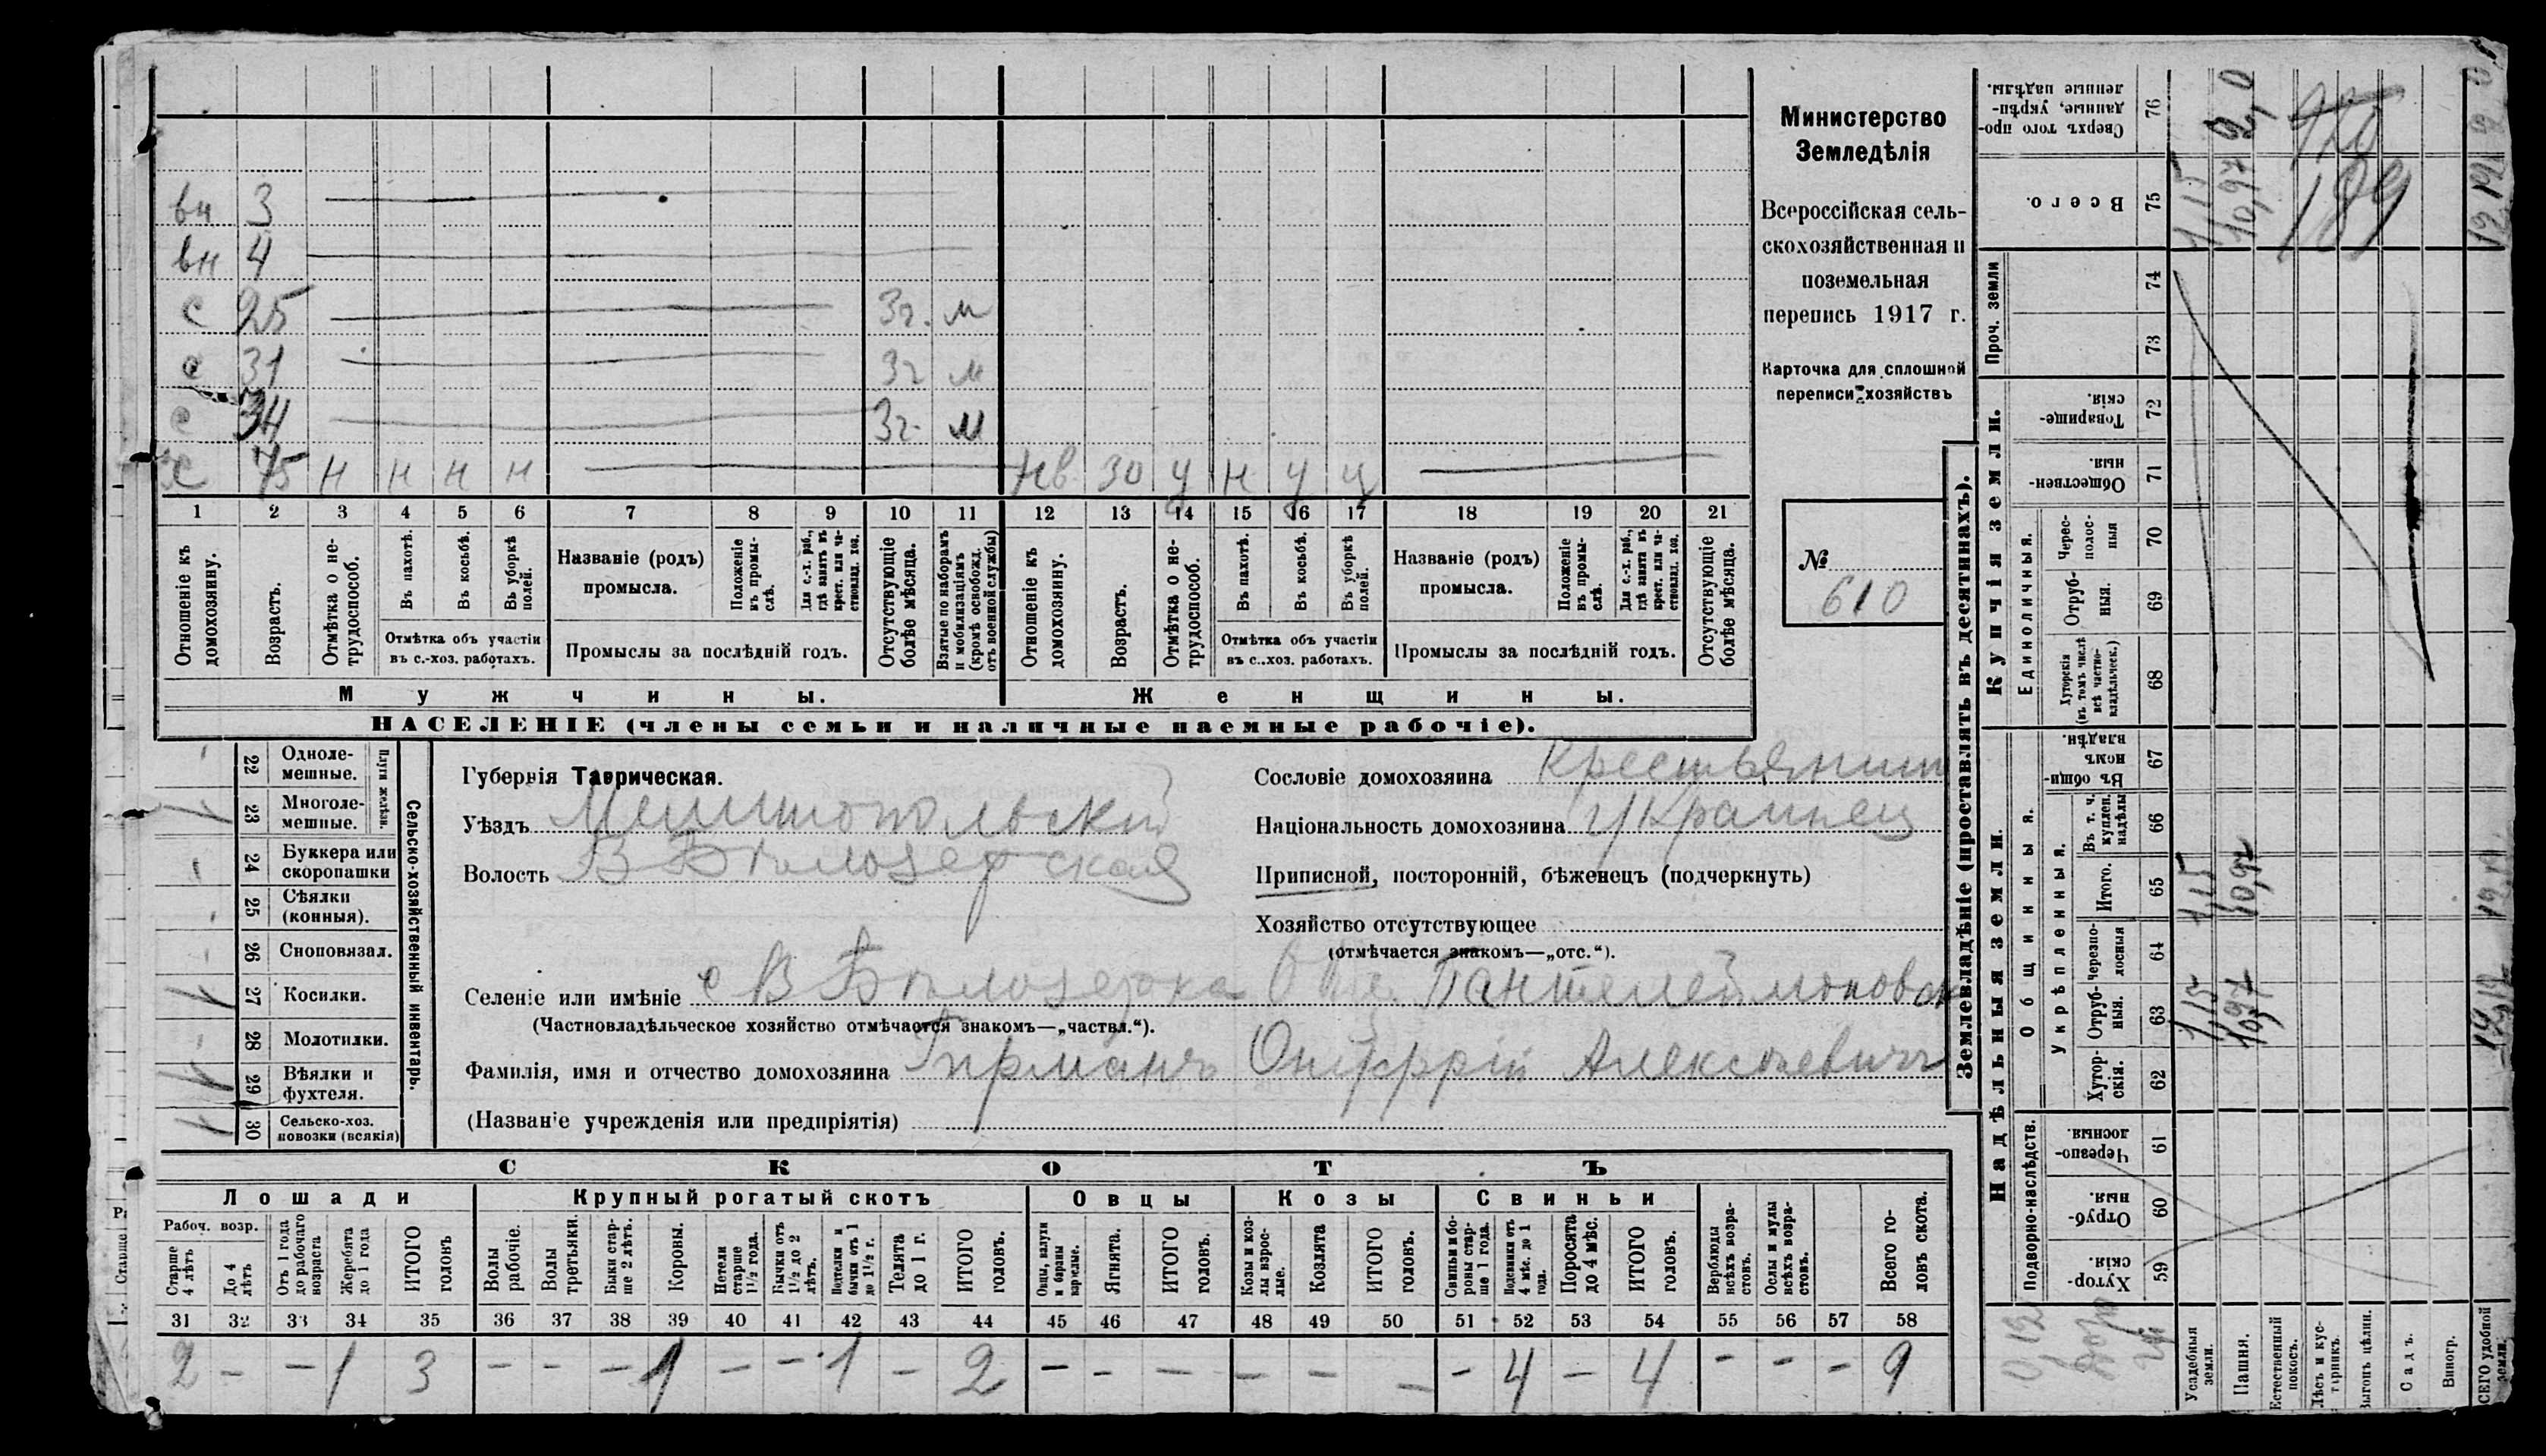 вн 3
вн 4
с 25 3г. м
с 31 3г м
с 34 3г. м
х 75 н н н н нв 30 у н у у
1 2 3 4 5 6 7 8 9 10 11 12 13 14 15 16 17 18 19 20 21
Отношеніе къ домохозяину.
Возрастъ.
Отмѣтка о не-
трудоспособ.
Въ пахотѣ.
Въ косьбѣ.
Въ уборкѣ
полей.
Отмѣтка объ участіи
въ с.-хоз. работахъ.
Названіе (родъ)
промысла.
Положеніе
въ промы-
слѣ.
Для с.-х. раб.,
гдѣ занятъ въ
крест. или ча-
стновлад. хоз.
Промыслы за послѣдній годъ.
Отсутствующіе
болѣе мѣсяца.
Взятые по наборамъ
и мобилизаціямъ
(кромѣ освобожд.
отъ военной службы)
Отношеніе къ
домохозяину.
Возрастъ.
Отмѣтка о не-
трудоспособ.
Въ пахотѣ.
Въ косьбѣ.
Въ уборкѣ
полей.
Отмѣтка объ участіи
въ с..хоз. работахъ.
Названіе (родъ)
промысла.
Положеніе
въ промы-
слѣ.
Для с.-х. раб.,
гдѣ занятъ въ
крест. или ча-
стновлад. хоз.
Промыслы за послѣдній годъ.
Отсутствующіе
болѣе мѣсяца.
Мужчины. Женщины.
НАСЕЛЕНІЕ (члены семьи и наличные наемные рабочіе).
Министерство
Земледѣлія
Всероссійская сель-
скохозяйственная и
поземельная
перепись 1917 г.
Карточка для сплошной
переписи хозяйствъ
№
610
22 Одноле-
мешные.
23 Многоле-
мешные.
Плуги желѣзн.
24 Буккера или
скоропашки
25 Сѣялки
(конныя).
26 Сноповязал.
27 Косилки.
28 Молотилки.
29 Вѣялки и
фухтеля.
30 Сельско-хоз.
повозки (всякія)
Сельско-хозяйственный инвентарь.
Губернія Таврическая.
Уѣздъ Мелитопольскій
Волость В Бѣлозерская
Сословіе домохозяина Крестьянин
Національность домохозяина украинец
Приписной, посторонній, бѣженецъ (подчеркнуть)
Хозяйство отсутствующее
(отмѣчается знакомъ—„отс.“).
Селеніе или имѣніе с В Бѣлозерка Пантелеймоновск
(Частновладѣльческое хозяйство отмѣчается знакомъ—„частвл.“).
Фамилія, имя и отчество домохозяина Гирманъ Онуфрій Алексѣевичъ
(Названіе учрежденія или предпріятія)
СКОТЪ
Лошади Крупный рогатый скотъ Овцы Козы Свиньи
Рабоч. возр.
Старше
4 лѣтъ
До 4
лѣтъ
Отъ 1 года
до рабочаго
возраста
Жеребята
до 1 года
ИТОГО
головъ
Волы
рабочіе.
Волы
третьяки.
Быки стар-
ше 2 лѣтъ.
Коровы.
Нетели
старше
1½ года.
Бычки отъ
1½ до 2
лѣтъ.
Подтелки и
бычки отъ 1
до 1½ г.
Телята
до 1 г.
ИТОГО
головъ.
Овцы, валухи
и бараны
взрослые.
Ягнята.
ИТОГО
головъ.
Козы и коз-
лы взрос-
лые.
Козлята
ИТОГО
головъ.
Свиньи и бо-
ровы стар-
ше 1 года.
Подсвинки отъ
4 мѣс. до 1
года.
Поросята
до 4 мѣс.
ИТОГО
головъ.
Верблюды
всѣхъ возра-
стовъ.
Ослы и мулы
всѣхъ возра-
стовъ.
Всего го-
ловъ скота.
31 32 33 34 35 36 37 38 39 40 41 42 43 44 45 46 47 48 49 50 51 52 53 54 55 56 57 58
2 - - 1 3 - - - 1 - - 1 - 2 - - - - - - - 4 - 4 - - - 9
Землевладѣніе (проставлять въ десятинахъ).
Надѣльныя земли. Купчія земли.
Проч. земли
Подворно-наслѣдств.
Общинныя.
Укрѣпленныя.
Единоличныя.
59 Хутор-
скія.
60 Отруб-
ныя.
61 Черезпо-
лосныя.
62 Хутор-
скія.
63 Отруб-
ныя.
64 Черезпо-
лосныя
65 Итого.
66 Въ т. ч.
куплен.
надѣлы
67 Въ общин-
номъ
владѣн.
68 Хуторскія
(въ томъ числѣ
всѣ частно-
владѣльческ.)
69 Отруб-
ныя.
70 Черес-
полос-
ныя
71 Обществен-
ныя.
72 Товарище-
скія.
73
74
75 Всего.
76 Сверхъ того про-
данные, укрѣп-
ленные надѣлы.
Усадебныя
земли. 1,15 1,15 1,15
Пашня. 10,97 10,97 10,97 2,0
Естественный
покосъ.
Лѣсъ и кус-
тарникъ.
Выгонъ цѣлин.
Садъ.
Виногр.
ВСЕГО удобной
земли. 12,12 12,12 12,12 2,0
189